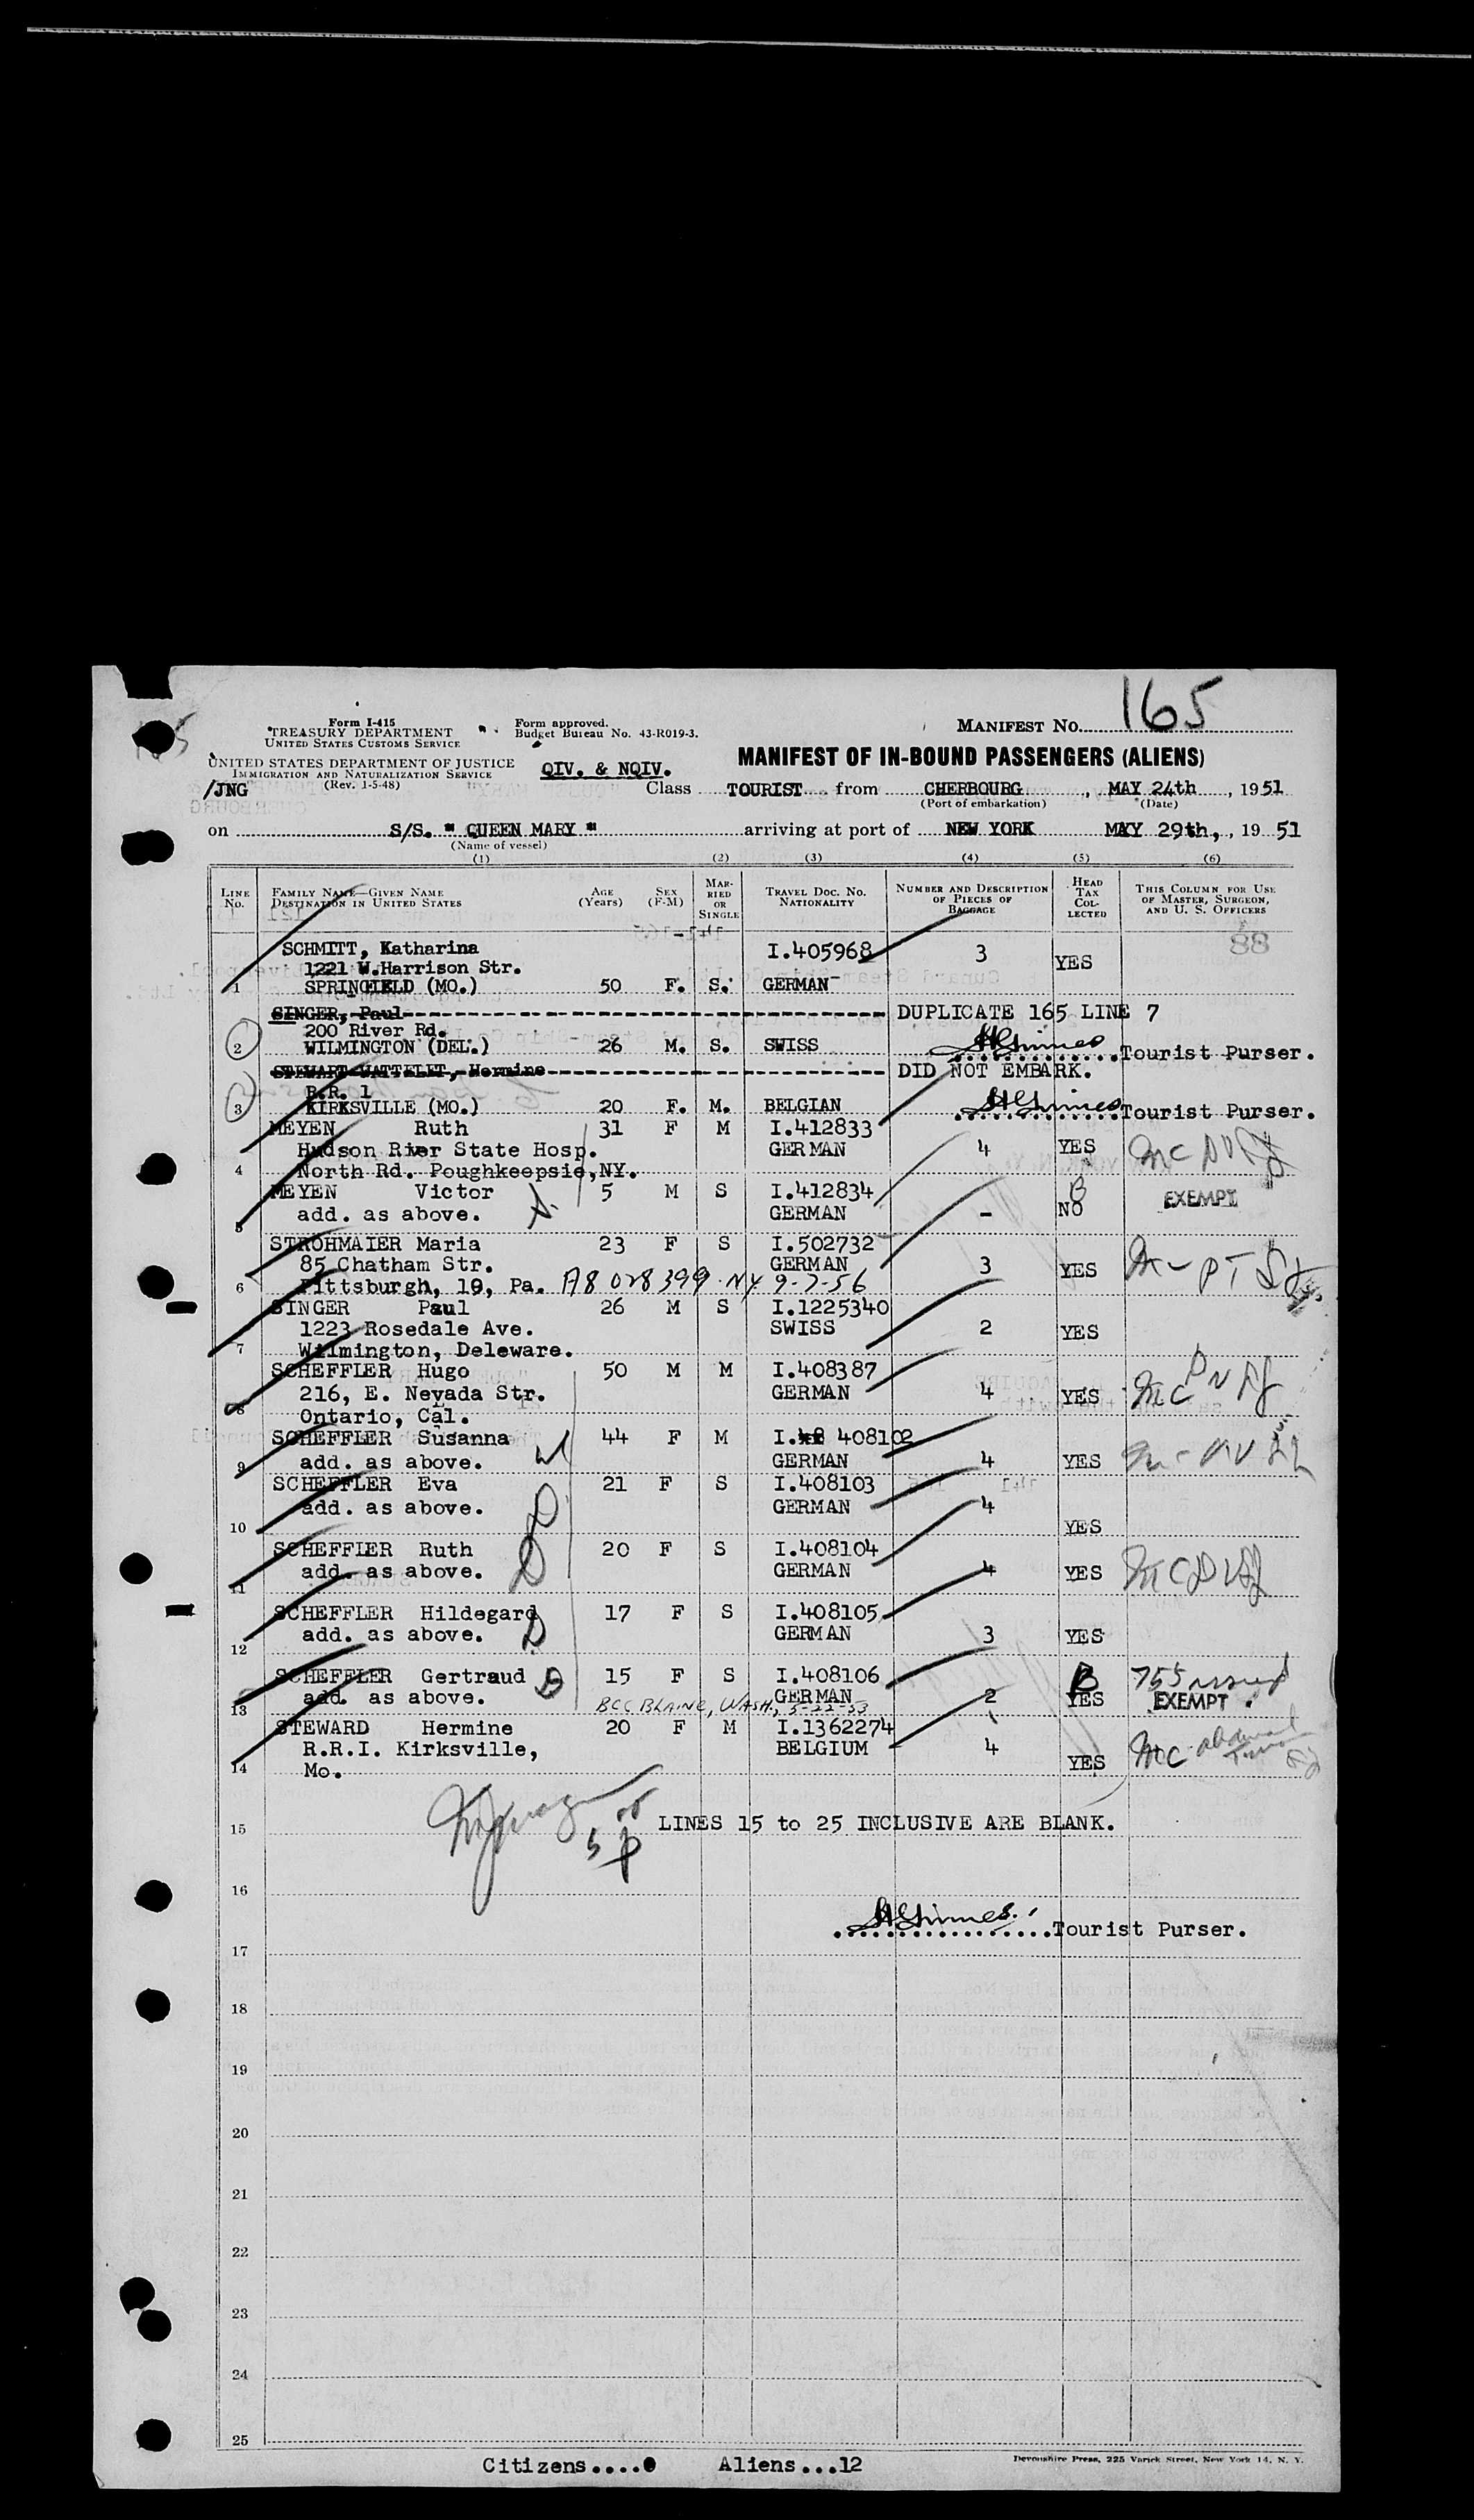 165
Form I-415
TREASURY DEPARTMENT
UNITED STATES CUSTOMS SERVICE
Form approved.
Budget Bureau No. 43-R019-3.
MANIFEST NO. 165
UNITED STATES DEPARTMENT OF JUSTICE
IMMIGRATION AND NATURALIZATION SERVICE
(Rev. 1-5-48)
QIV. & NQIV.
MANIFEST OF IN-BOUND PASSENGERS (ALIENS)
/JNG Class TOURIST from CHERBOURG, MAY 24th, 1951
(Port of embarkation) (Date)
on S/S. " QUEEN MARY " arriving at port of NEW YORK MAY 29th, , 19 51
(Name of vessel)
(1) (2) (3) (4) (5) (6)
LINE NO. FAMILY NAME—GIVEN NAME DESTINATION IN UNITED STATES AGE (Years) SEX (F-M) MARRIED OR SINGLE TRAVEL DOC. NO. NATIONALITY NUMBER AND DESCRIPTION OF PIECES OF BAGGAGE HEAD TAX COLLECTED THIS COLUMN FOR USE OF MASTER, SURGEON, AND U. S. OFFICERS
88
SCHMITT, Katharina I.405968 3 YES
1221 W.Harrison Str.
1 SPRINGFIELD (MO.) 50 F. S. GERMAN
SINGER, Paul DUPLICATE 165 LINE 7
200 River Rd.
2 WILMINGTON (DEL.) 26 M. S. SWISS Tourist Purser.
STEWART-WATTELET, Hermine DID NOT EMBARK.
R.R. 1
3 KIRKSVILLE (MO.) 20 F. M. BELGIAN Tourist Purser.
MEYEN Ruth 31 F M I.412833
Hudson River State Hosp. GERMAN 4 YES
4 North Rd. Poughkeepsie,NY.
MEYEN Victor 5 M S I.412834 EXEMPT
add. as above. GERMAN - NO
5
STROHMAIER Maria 23 F S I.502732
85 Chatham Str. GERMAN 3 YES
6 Pittsburgh, 19, Pa. A8 028 399 NY 9-7-56
SINGER Paul 26 M S I.1225340
1223 Rosedale Ave. SWISS 2 YES
7 Wilmington, Deleware.
SCHEFFLER Hugo 50 M M I.408387
216, E. Nevada Str. GERMAN 4 YES
8 Ontario, Cal.
SCHEFFLER Susanna 44 F M I. 408102
9 add. as above. GERMAN 4 YES
SCHEFFLER Eva 21 F S I.408103
add. as above. GERMAN 4
10 YES
SCHEFFLER Ruth 20 F S I.408104
add. as above. GERMAN 4 YES
11
SCHEFFLER Hildegard 17 F S I.408105
add. as above. GERMAN 3 YES
12
SCHEFFLER Gertraud 15 F S I.408106
add. as above. GERMAN 2 YES EXEMPT
13 BCC BLAINE, WASH., 5-22-53
STEWARD Hermine 20 F M I.1362274
R.R.I. Kirksville, BELGIUM 4
14 Mo. YES
15 LINES 15 to 25 INCLUSIVE ARE BLANK.
16
Tourist Purser.
17
18
19
20
21
22
23
24
25
Citizens....0 Aliens...12
Devonshire Press, 225 Varick Street, New York 14, N. Y.